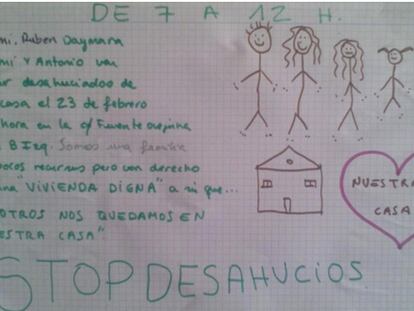 DE 7 A 12 H.
mi, Ruben Daymara
mi y Antonio van
ur desahuciados de
casa el 23 de febrero
ahora en la c/ Fuente
B Izq. Somos una familia
pocos recursos pero con derecho
una "VIVIENDA DIGNA" a si que...
OTROS NOS QUEDAMOS EN
ESTRA CASA"
STOP DESAHUCIOS
NUESTRA
CASA